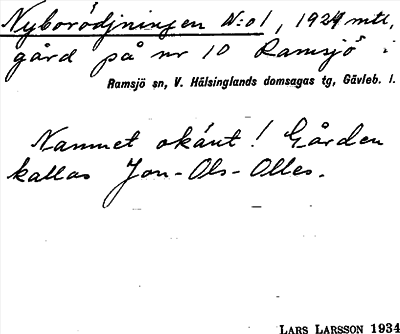 Nyborödjningen N:o 1, 1924 mtl,
gård på nr 10 Ramsjö i
Ramsjö sn, V. Hälsinglands domsagas tg, Gävleb. l.
Namnet okänt! Gården
kallas Jon-Ols-Olles.
LARS LARSSON 1934